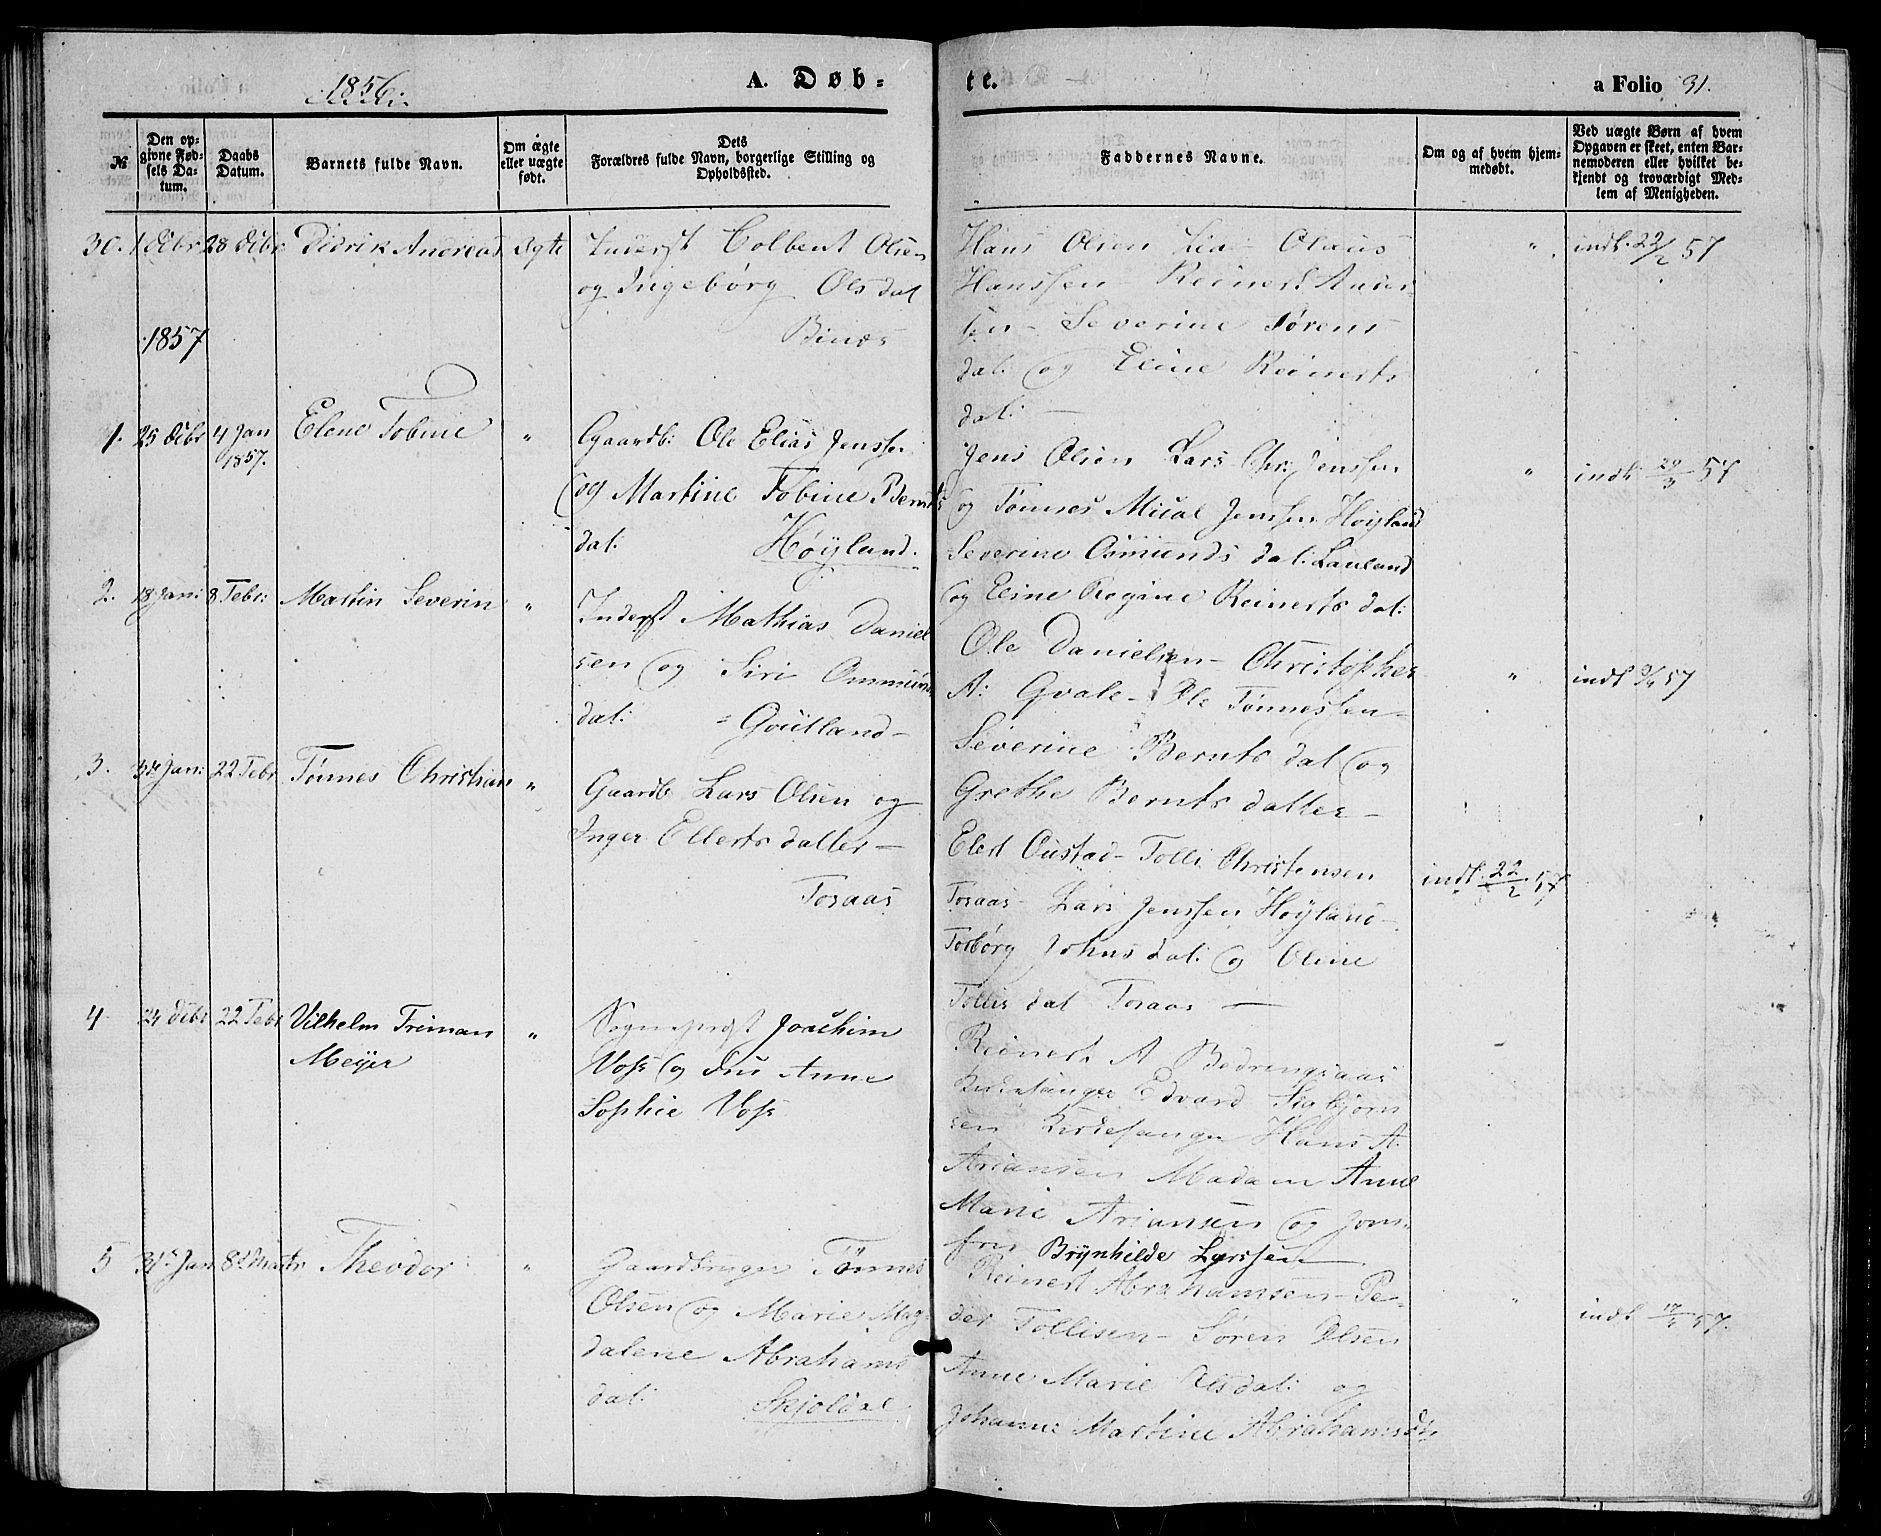 1856
A. Døb-
te.
a Folio 31.
№
Den op-
givne Fød-
sels Da-
tum.
Daabs
Datum.
Barnets fulde Navn.
Om ægte
eller uægte
født.
Dets
Forældres fulde Navn, borgerlige Stilling og
Opholdssted.
Faddernes Navne.
Om og af hvem hjem-
medøbt.
Ved uægte Børn af hvem
Opgaven er skeet, enten Bar-
nemoderen eller hvilket be-
kjendt og troværdigt Med-
lem af Menigheden.
30. 1 Debr 28 Debr Didrik Andreas Ægte
Inderst Colbent Olsen
og Ingebørg Olsdat
Hans Olsen Lia Olaus
Hanssen Reinert Ander-
sen - Severine Sørens
dat: og Eline Reinerts
dat: -
" indf. 22/2 57
1857
1. 25 Debr 4 Jan 1857. Elene Tobine "
Gaardb: Ole Elias Jenssen
og Martine Tobine Bernts
dat: Høyland.
Jens Olsen Lars Chr: Jenssen
og Tønnes Mical Jenssen Høyland
Severine Osmunds dat: Lauland
og Eline Regine Reinerts dat:
" indf 29/3 57
2. 18 Jan: 8 Febr: Martin Severin "
Inderst Mathias Daniel
sen og Siri Ommunds
dat: Goutland -
Ole Danielsen - Christopher
A: Qvale - Ole Tønnessen -
Severine Bernts dat og
Grethe Bernts datter -
" indf 57
3. Jan: 22 Febr Tønnes Christian "
Gaardb Lars Olsen og
Inger Ellerts datter -
Toraas
Elert Oustad - Tolli Christensen
Toraas - Lars Jenssen Høyland -
Torbørg Johns dat: og Oline
Tollis dat Toraas -
indf. 22/2 57
4 24 Debr 22 Febr Vilhelm Friman
Meyer "
Sogneprest Joachim
Voss og Fru Anne
Sophie Voss
Reinert A Bedringsaas
Kirkesanger Edvard Sigbjørn
sen Kirkesanger Hans A.
Ariansen Madam Anne
Marie Ariansen og Jom-
fru Brynhilde Larssen
5 31te Jan 8de Marts Theodor "
Gaardbruger Tönnes
Olsen og Marie Mag-
dalene Abrahams
dat: Skjoldal
Reinert Abrahamsen - Pe-
der Tollisen - Søren Olsen
Anne Marie Olsdat: og
Johanne Martine Abrahamsdt
" indf 57.